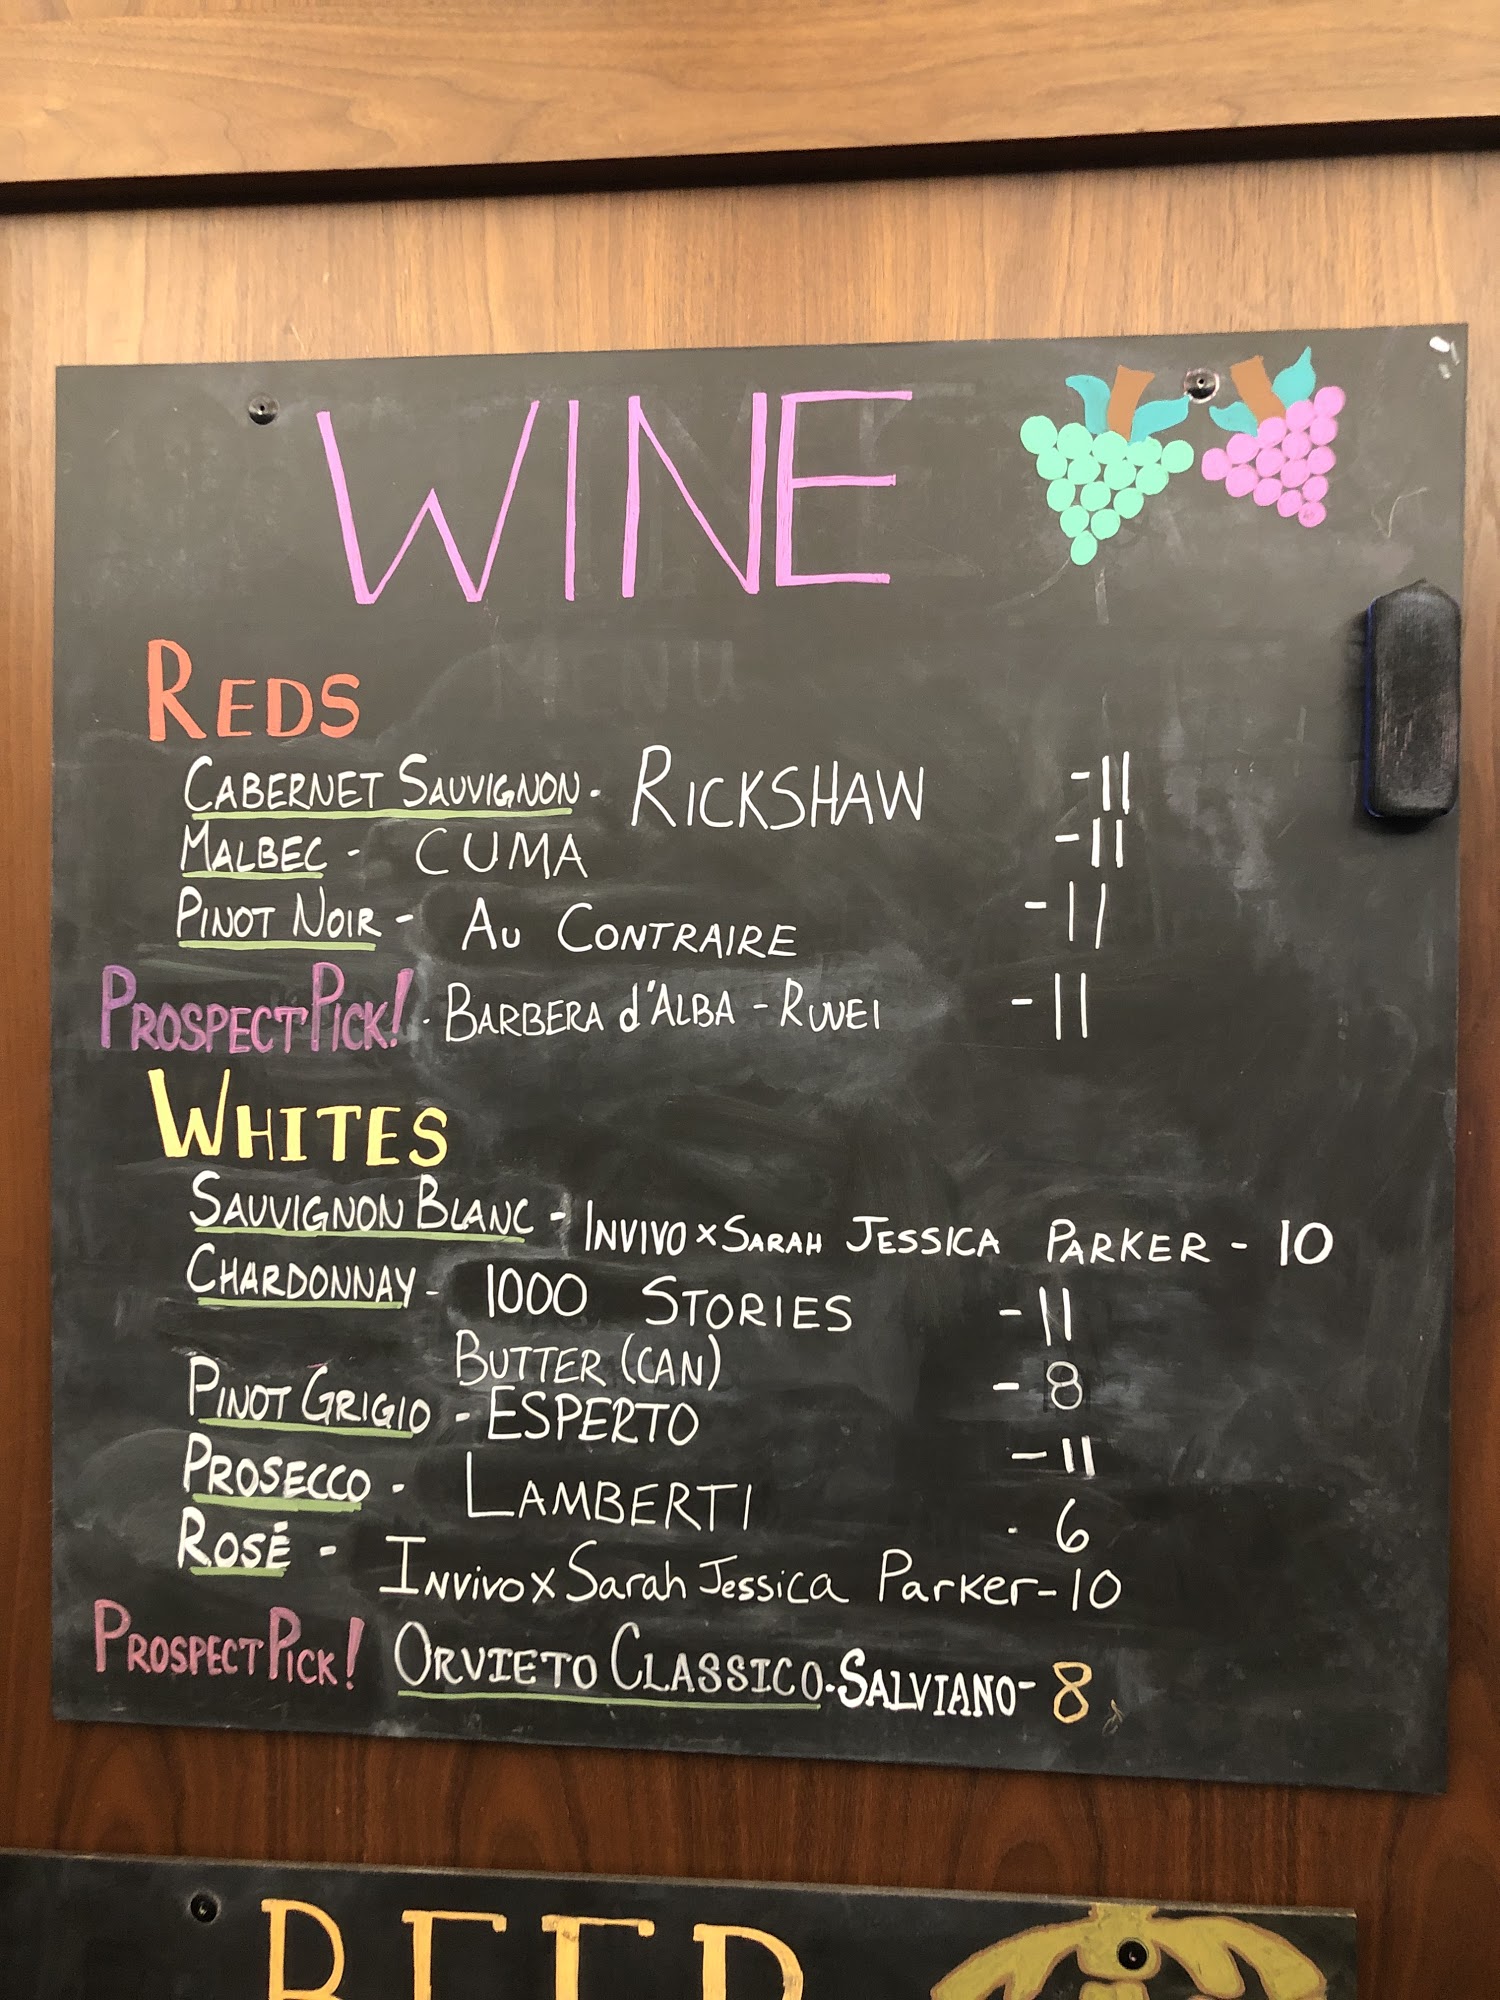 WINE
REDS
CABERNET SAUVIGNON - RICKSHAW - 11
MALBEC - CUMA - 11
PINOT NOIR - AU CONTRAIRE - 11
PROSPECT PICK! - BARBERA d'ALBA - RUVEI - 11
WHITES
SAUVIGNON BLANC - INVIVO x SARAH JESSICA PARKER - 10
CHARDONNAY - 1000 STORIES - 11
BUTTER (CAN) - 8
PINOT GRIGIO - ESPERTO - 11
PROSECCO - LAMBERTI - 6
ROSÉ - INVIVO x Sarah Jessica Parker - 10
PROSPECT PICK! ORVIETO CLASSICO - SALVIANO - 8
BEER